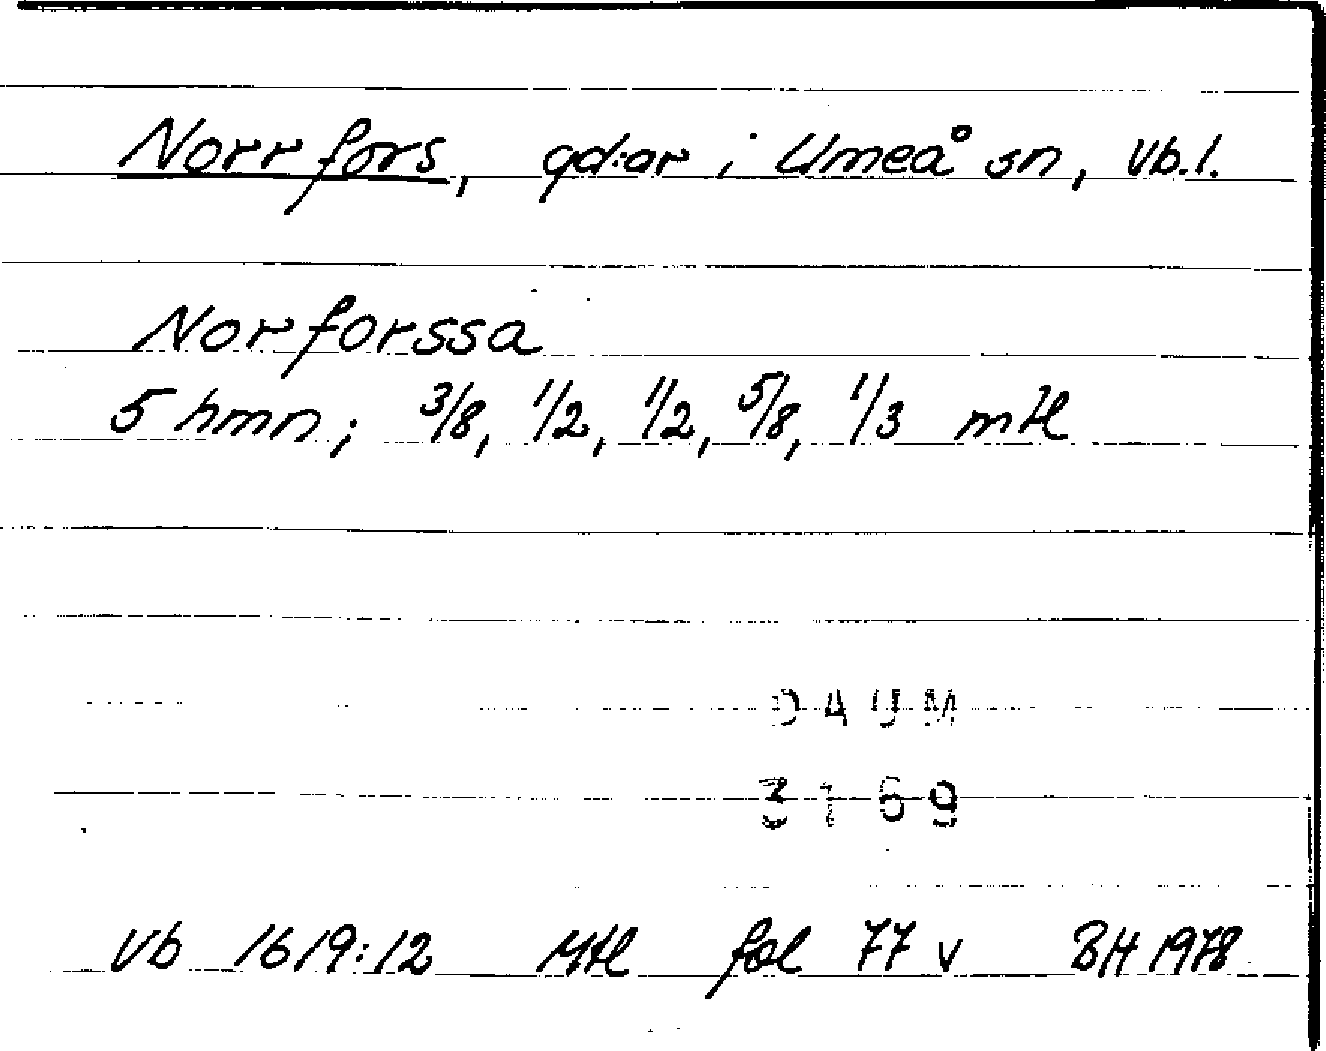 Norrfors, gd:ar i Umeå sn, Vb.l.
Norforssa
5 hmn; 3/8, 1/2, 1/2, 5/8, 1/3 mtl
DAUM
3169
Vb 1619:12 Mtl fol 77 v BH 1978